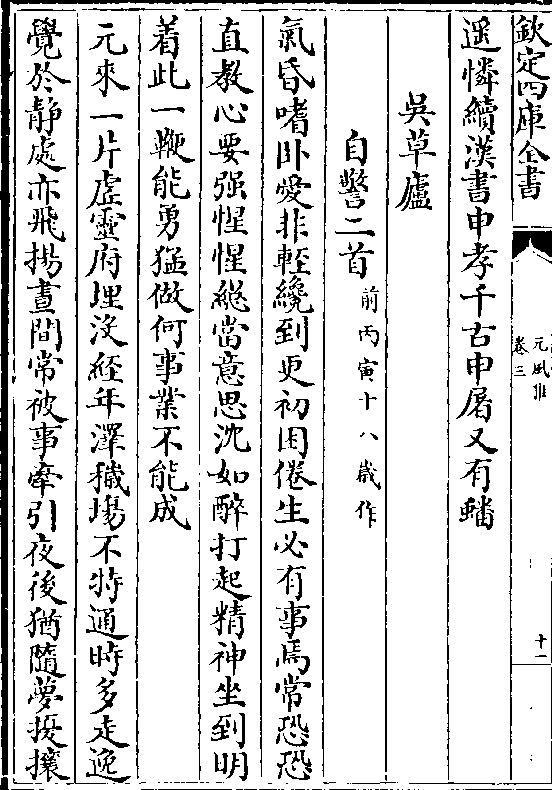 欽定四庫全書
元風雅
卷三
十一
遥憐續漢書申孝千古申屠又有蟠
吳草廬
自警二首 前丙寅十八歲作
氣昏嗜卧愛非輕纔到更初困倦生必有事焉常恐恐
直教心要强惺惺縱當意思沈如醉打起精神坐到明
着此一鞭能勇猛做何事業不能成
元來一片虛靈府埋沒經年澤穢場不特通時多走逸
覺於静處亦飛揚晝間常被事牽引夜後猶隨夢擾攘